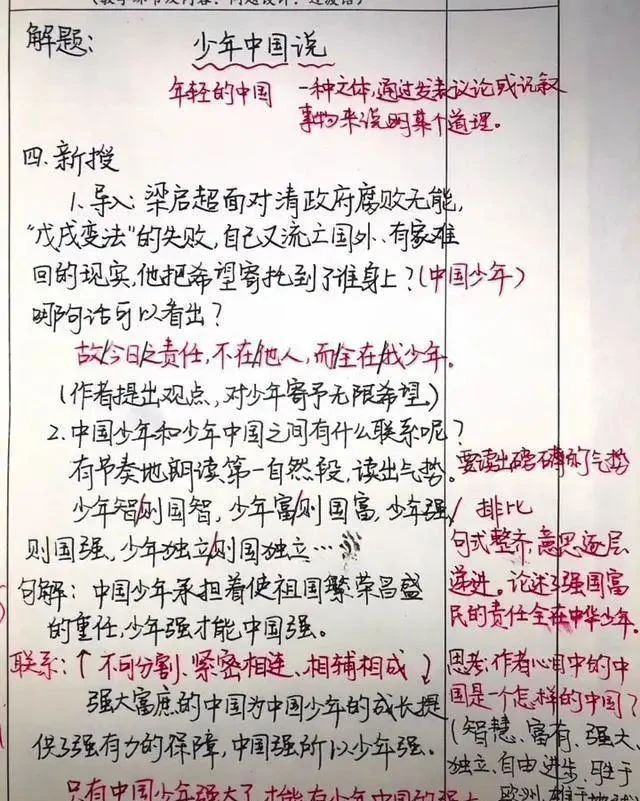 解题：
少年中国说
年轻的中国 一种文体，通过发表议论或记叙
事物来说明某个道理。
四.新授
1.导入：梁启超面对清政府腐败无能，
“戊戌变法”的失败，自己又流亡国外、有家难
回的现实，他把希望寄托到了谁身上？（中国少年）
哪句话可以看出？
故/今日之责任，不在/他人，而全在/我少年。
（作者提出观点，对少年寄予无限希望。）
2.中国少年和少年中国之间有什么联系呢？
有节奏地朗读第一自然段，读出气势。
要读出磅礴的气势
少年智/则国智，少年富/则国富，少年强/
则国强，少年独立/则国独立…
排比
句式整齐，意思逐层
递进。论述了强国富
民的责任全在中华少年。
句解：中国少年承担着使祖国繁荣昌盛
的重任，少年强才能中国强。
联系：↑ 不可分割、紧密相连、相辅相成 ↓
强大富庶的中国为中国少年的成长提
供了强有力的保障，中国强所以少年强。
思考：作者心目中的中
国是一个怎样的中国？
（智慧、富有、强大、
独立、自由、进步、胜于
只有中国少年强大了，才能有少年中国的强大